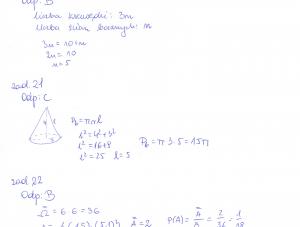 Odp: B
liczba krawędzi: 3n
liczba ścian bocznych: n
3n = 10+n
2n = 10
n = 5
zad. 21
Odp: C
Pb = πrl
l² = 4² + 3²
l² = 16 + 9
l² = 25 l = 5
Pb = π · 3 · 5 = 15π
zad. 22
Odp: B
Ω̿ = 6 · 6 = 36
A̿ = 2
P(A) = A̿ / Ω̿ = 2/36 = 1/18